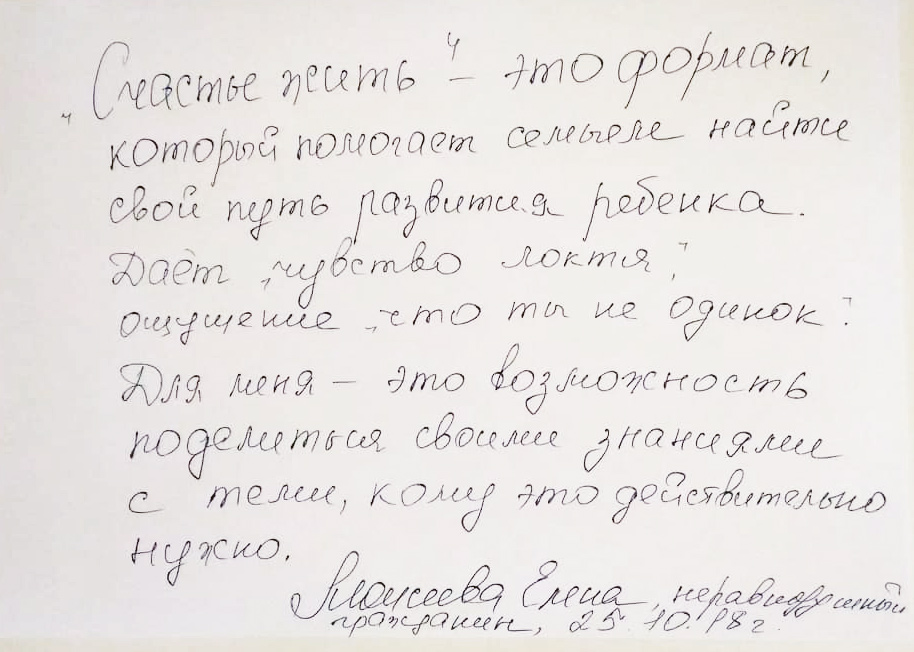 „Счастье жить“ – это формат,
который помогает семьям найти
свой путь развития ребенка.
Даёт „чувство локтя“,
ощущение „что ты не одинок“.
Для меня – это возможность
поделиться своими знаниями
с теми, кому это действительно
нужно.
Моисеева Елена, неравнодушный
гражданин, 25.10.18 г.